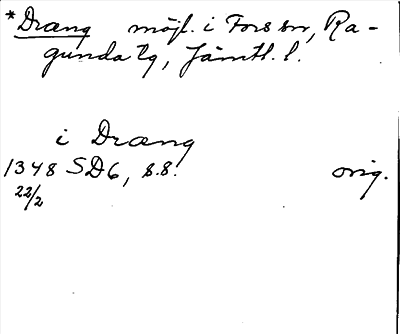 *Drang möjl. i Fors sn, Ra-
gunda tg, Jämtl. l.
i Drang
1348 SD6, s.8. orig.
22/2